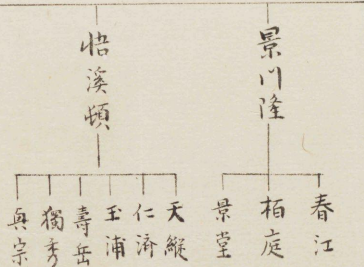 景川隆
春江
柏庭
景堂
悟溪頓
天縱
仁済
玉浦
壽岳
獨秀
興宗